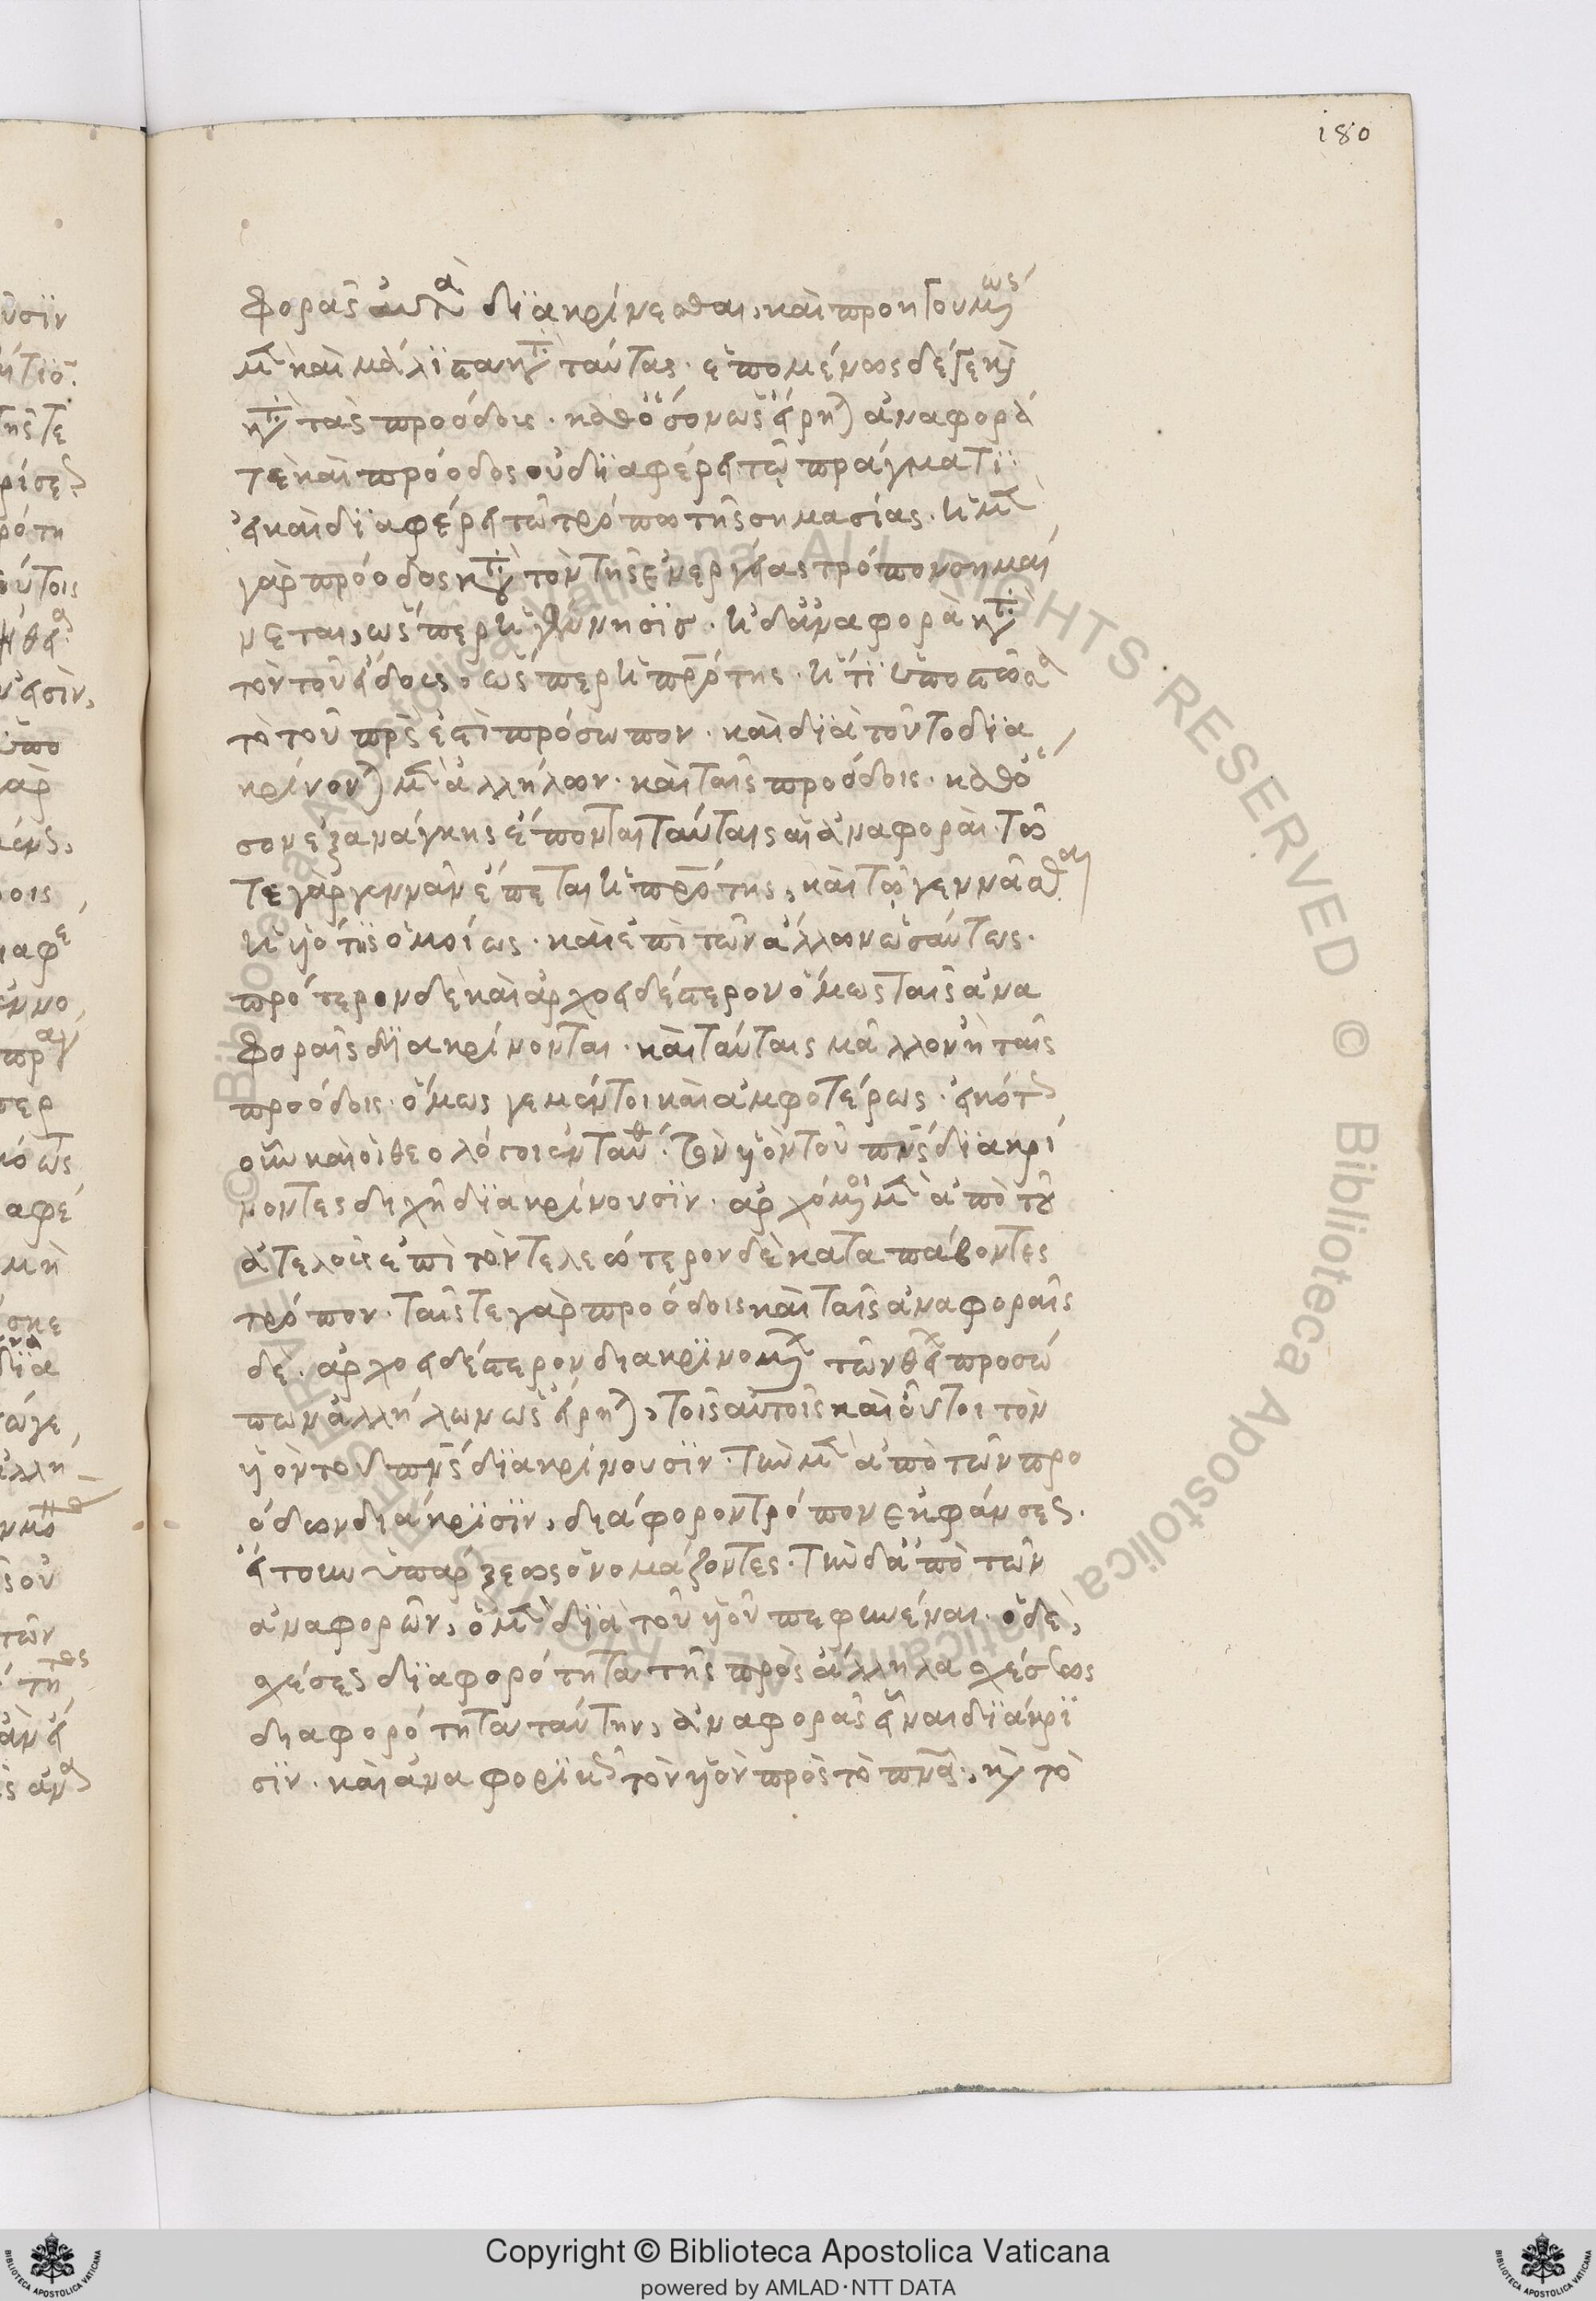 180
φοραῖς ἀλλὰ διακρίνεσθαι, καὶ προηγουμένως
μὲν καὶ μάλιστα κατὰ ταύτας· ἑπομένως δέ γε καὶ
κατὰ τὰς προόδους· καθόσον ὡς εἴρηται ἀναφορά
τε καὶ πρόοδος οὐ διαφέρει τῷ πράγματι·
εἰ καὶ διαφέρει τῷ τρόπῳ τῆς σημασίας· ἡ μὲν
γὰρ πρόοδος κατὰ τὸν τῆς ἐνεργείας τρόπον σημαί
νεται, ὥσπερ ἡ γέννησις· ἡ δ' ἀναφορὰ κατὰ
τὸν τοῦ εἴδους, ὥσπερ ἡ πατρότης· ἥτις ὑφιστᾶ
τὸ τοῦ πατρὸς ἐστὶ πρόσωπον· καὶ διὰ τοῦτο δια
κρίνονται μὲν ἀλλήλων· καὶ ταῖς προόδοις· καθό
σον ἐξανάγκης ἕπονται ταύταις αἱ ἀναφοραί· τῷ
τε γὰρ γεννᾶν ἕπεται ἡ πατρότης, καὶ τῷ γεννᾶσθαι
ἡ υἱότης ὁμοίως· καὶ ἐπὶ τῶν ἄλλων ὡσαύτως·
πρότερον δὲ καὶ ἀρχοειδέστερον ὅμως ταῖς ἀνα
φοραῖς διακρίνονται· καὶ ταύταις μᾶλλον ἢ ταῖς
προόδοις· ὅμως γε μέντοι καὶ ἀμφοτέρως· εἰκότως
οὖν καὶ οἱ θεολόγοι ἐνταῦθα· τὸν υἱὸν τοῦ πνεύματος διακρί
νοντες διχῇ διακρίνουσιν· ἀρχόμενοι μὲν ἀπὸ τοῦ
ἀτελοῦς ἐπὶ τὸν τελεώτερον δὲ καταπαύοντες
τρόπον· ταῖς τε γὰρ προόδοις καὶ ταῖς ἀναφοραῖς
δὲ· ἀρχοειδέστερον διακρινομένων τῶν θείων προσώ
πων ἀλλήλων ὡς εἴρηται, τοῖς αὐτοῖς καὶ οὗτοι τὸν
υἱὸν τοῦ πνεύματος διακρίνουσιν· τὴν μὲν ἀπὸ τῶν προ
όδων διάκρισιν, διάφορον τρόπον ἐκφάνσεως·
εἴτουν ὑπάρξεως ὀνομάζοντες· τὴν δ' ἀπὸ τῶν
ἀναφορῶν, ὁ μὲν διὰ τοῦ υἱοῦ πεφηνέναι· ὁ δὲ,
σχέσεως διαφορότητα τῆς πρὸς ἄλληλα σχέσεως
διαφορότητα ταύτην, ἀναφορᾶς εἶναι διάκρι
σιν· καὶ ἀναφορικῶς τὸν υἱὸν πρὸς τὸ πνεῦμα, καὶ τὸ
Copyright © Biblioteca Apostolica Vaticana
powered by AMLAD·NTT DATA